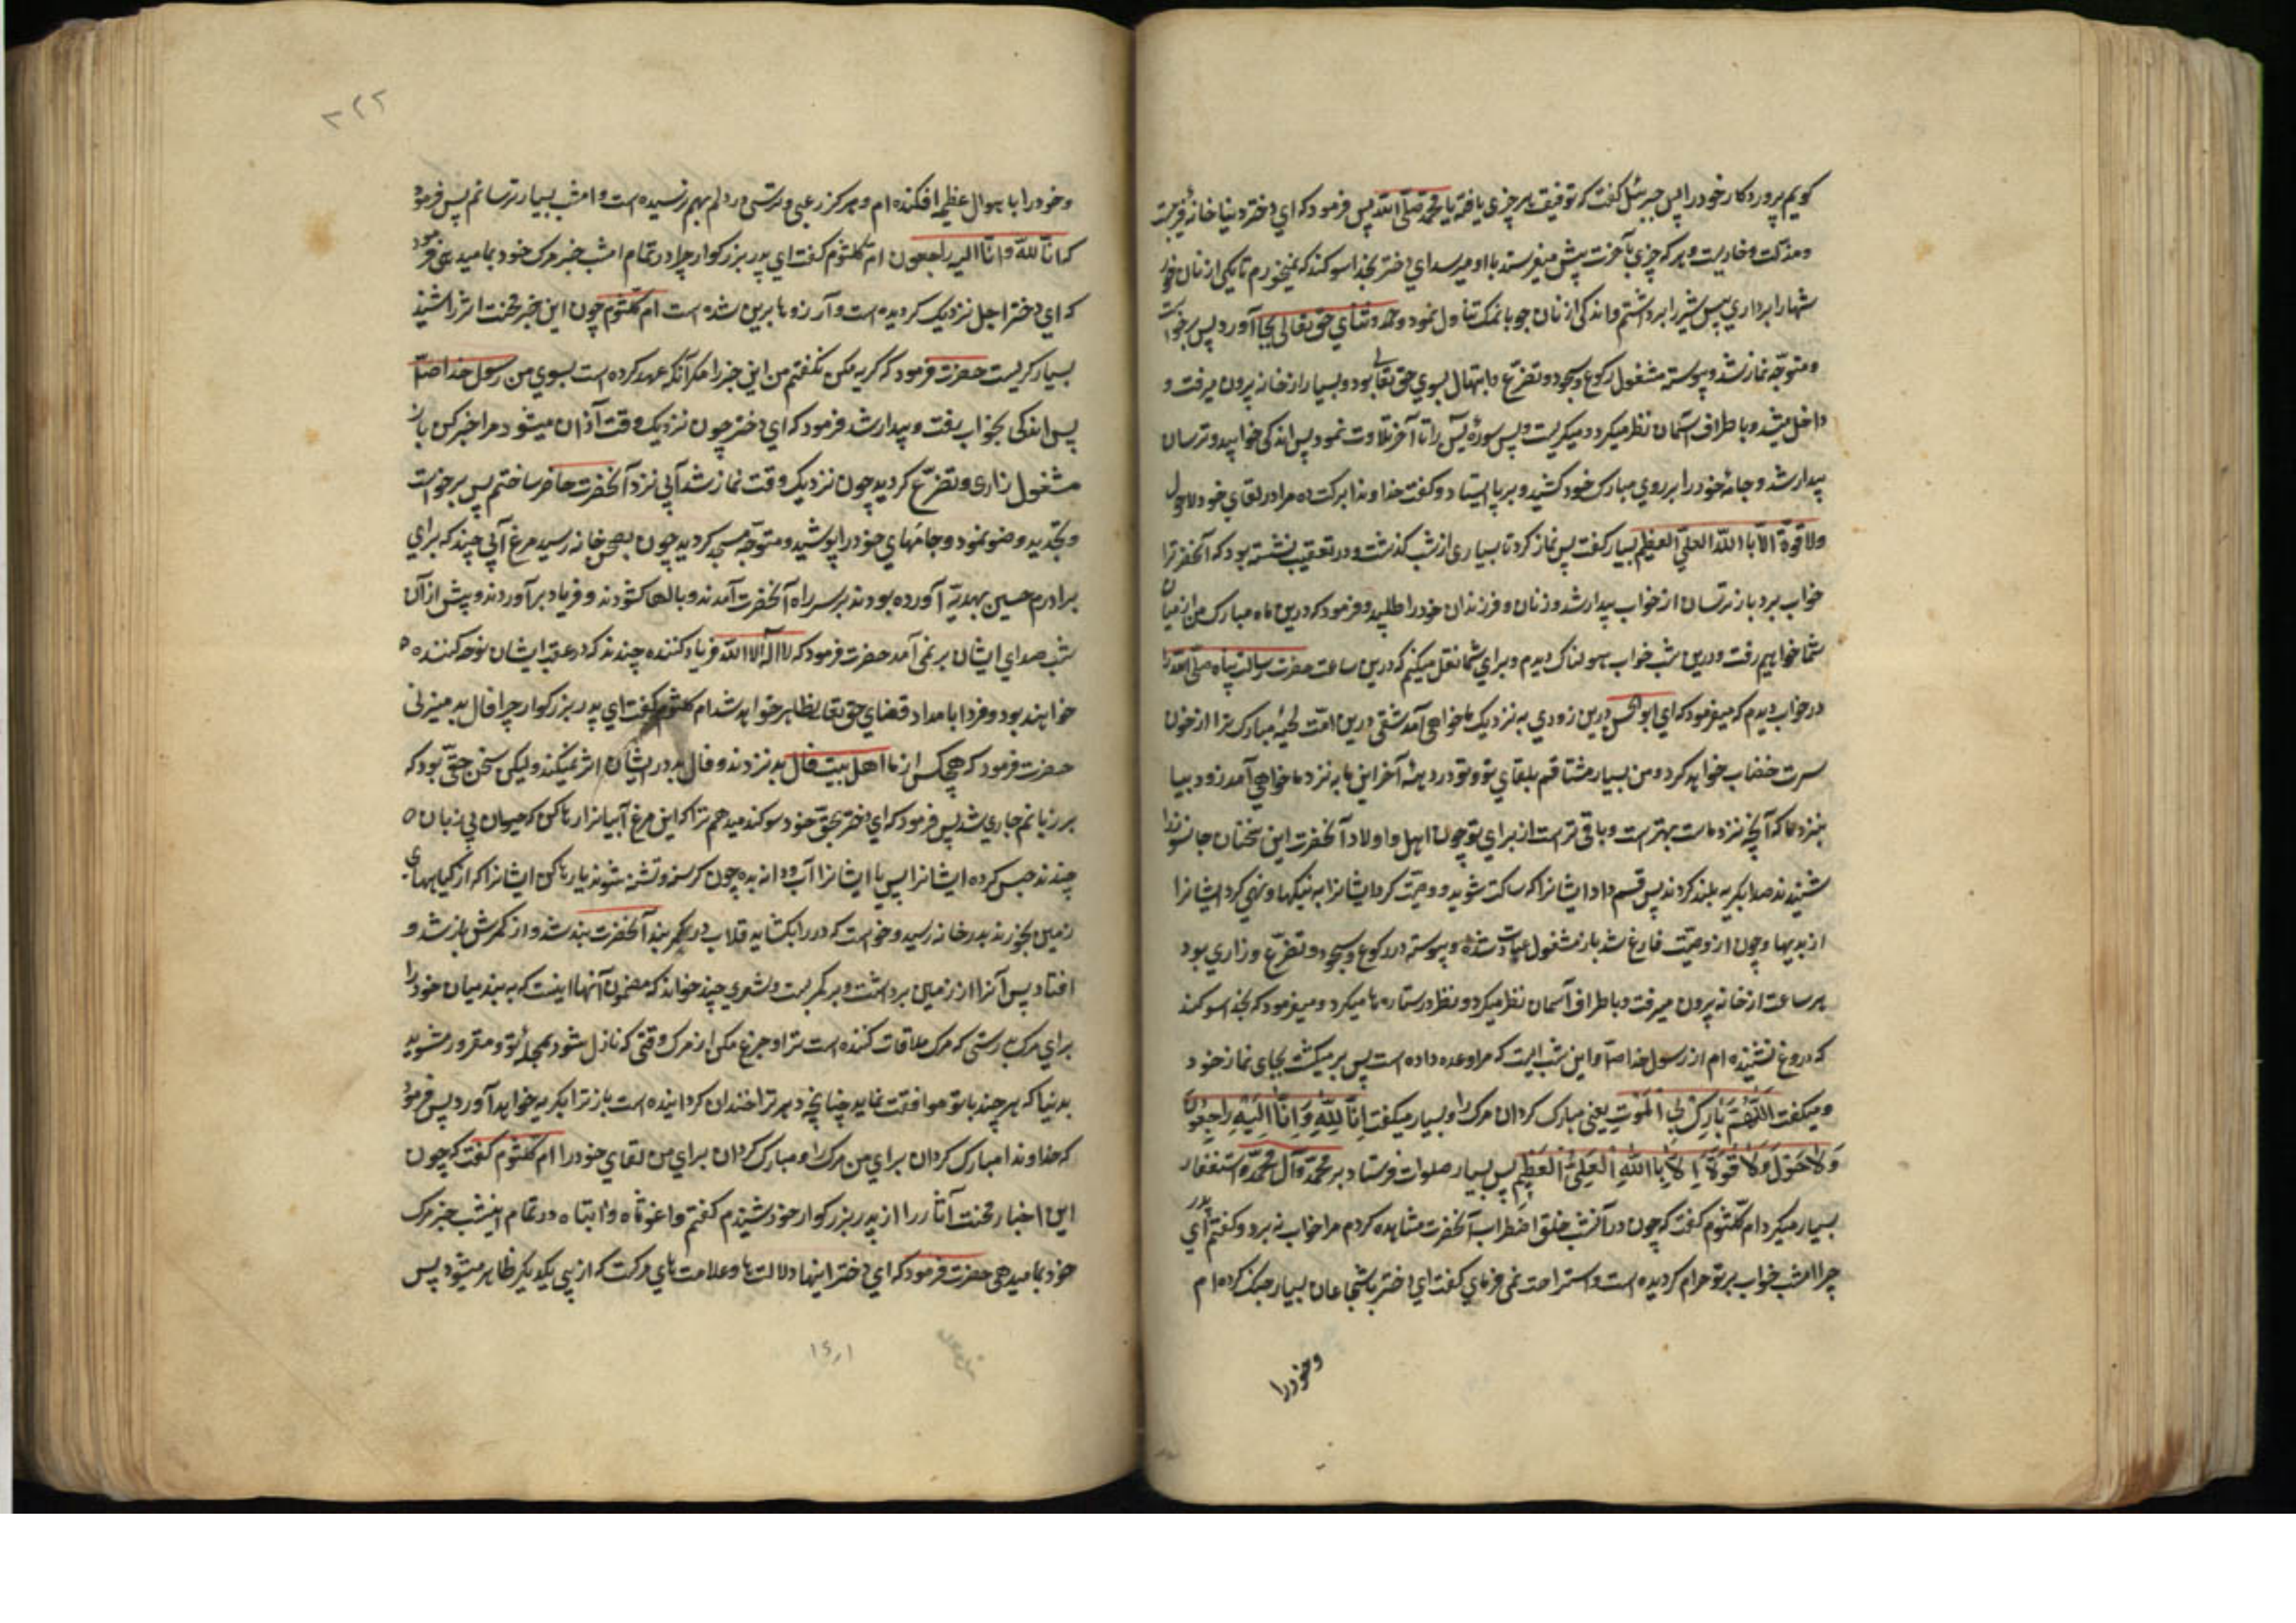 کویم پروردکار خود را پس جبرئیل کفت که توفیق هر چیزی یافته یا محمد صلی الله پس فرمود که ای دختر دنیا خانه فریبست
و مذلت و هر که چیزی بآخرت پیش میفرستد باو میرسد ای دختر بخدا سوکند که نمیخورم تا یکی از نان خورش
شهارا برداری پس شیر را برداشتم و اندکی از نان جو با نمک تناول نمود و حمد و ثنای حق تعالی بجا آورد پس برخواست
و متوجه نماز شد و پیوسته مشغول رکوع و سجود و تضرع و ابتهال بسوی حق تعالی بود و بسیار از خانه بیرون میرفت و
داخل میشد و باطراف آسمان نظر میکرد و میکریست و پس سوره یس را تا آخر تلاوت نمود پس اندکی خوابید و ترسان
بیدار شد و جامه خود را بر روی مبارک خود کشید و بر پا ایستاد و کفت خداوندا برکت ده مرا در لقای خود و لاحول
ولا قوة الا بالله العلی العظیم بسیار کفت پس نماز کرد تا بسیاری از شب کذشت و در تعقیب نشسته بود که آنحضرترا
خواب برد باز ترسان از خواب بیدار شد و زنان و فرزندان خود را طلبید و فرمود که درین ماه مبارک من از میان
شما خواهیم رفت و درین شب خواب هولناک دیدم و برای شما نقل میکنم که درین ساعت حضرت رسالت پناه صلی الله را
در خواب دیدم که میفرمود که ای ابوالحسن درین زودی به نزدیک ما خواهی آمد شقی درین امت لحیه مبارک ترا از خون
سرت خضاب خواهد کرد و من بسیار مشتاقم بلقای تو و تو در دهه آخر این ماه نزد ما خواهی آمد زود بیا
بنزد ما که آنچه نزد ماست بهتر است و باقی تر است از برای تو چون اهل و اولاد آنحضرت این سخنان جانسوز را
شنیدند صدا بکریه بلند کردند پس قسم داد ایشانرا که ساکت شوید و وصیت کرد ایشانرا به نیکیها و نهی کرد ایشانرا
از بدیها و چون از وصیت فارغ شد باز مشغول عبادت شده و پیوسته در رکوع و سجود و تضرع و زاری بود
هر ساعت از خانه بیرون میرفت و باطراف آسمان نظر میکرد و نظر در ستاره ها میکرد و میفرمود که بخدا سوکند
که دروغ نشنیده ام از رسول خدا ص و این شب است که مرا وعده داده است پس بر میکشت بجای نماز خود
و میکفت اللَّهُمَّ بَارِكْ لِي الْمَوْتِ یعنی مبارک کردان مرک را و بسیار میکفت اِنَّا لِلّٰهِ وَ اِنَّا اِلَیْهِ رَاجِعُونَ
وَلَا حَوْلَ وَلَا قُوَّةَ اِلَّا بِاللّٰهِ الْعَلِیِّ الْعَظِیْمِ پس بسیار صلوات فرستاد بر محمد و آل محمد و استغفار
بسیار میکرد ام کلثوم کفت که چون در آنشب قلق و اضطراب آنحضرت مشاهده کردم مرا خواب نبرد و کفتم ای پدر
چرا امشب خواب بر تو حرام کردیده است و استراحت نمی فرمای کفت ای دختر با شجاعان بسیار جنک کرده ام
و خود را
۳۲۲
و خود را باهوال عظیم افکنده ام و هرکز رعبی و ترسی در دلم بهم نرسیده است و امشب بسیار ترسانم پس فرمود
که انا لله و انا الیه راجعون ام کلثوم کفت ای پدر بزرکوار چرا در تمام امشب خبر مرک خود بما میدهی فرمود
که ای دختر اجل نزدیک کردیده است و آرزوها بریده شده است ام کلثوم چون این خبر محنت اثر را شنید
بسیار کریست حضرت فرمود که کریه مکن نکفتم من این خبر را مکر آنکه عهد کرده است بسوی من رسول خدا ص
پس اندکی بخواب رفت و بیدار شد فرمود که ای دختر چون نزدیک وقت آذان میشود مرا خبر کن باز
مشغول زاری و تضرع کردید چون نزدیک وقت نماز شد آبی نزد آنحضرت حاضر ساختم پس برخواست
و تجدید وضو نمود و جامهای خود را پوشید و متوجه مسجد کردید چون بصحن خانه رسید مرغ آبی چند که برای
برادرم حسین بهدیه آورده بودند بر سر راه آنحضرت آمدند و بالها کشودند و فریاد برآوردند و پیش از آن
شب صدای ایشان بر نمی آمد حضرت فرمود که لا اله الا الله فریاد کننده چندند که در عقب ایشان نوحه کننده ه
خواهند بود و فردا بامداد قضای حق تعالی ظاهر خواهد شد ام کلثوم کفت ای پدر بزرکوار چرا فال بد میزنی
حضرت فرمود که هیچکس از ما اهل بیت فال بد نزدند و فال بد در ایشان اثر نمیکند ولیکن سخن حقی بود که
بر زبانم جاری شد پس فرمود که ای دختر بحق خود سوکند میدهم ترا که این مرغ آبیانرا رها کن که حیوان بی زبان ه
چندند حبس کرده ایشانرا پس یا ایشانرا آب و دانه بده چون کرسنه و تشنه شوند یا رها کن ایشانرا که از کیاههای
زمین بخورند بدر خانه رسید و خواست که در را بکشاید قلاب در بکمربند آنحضرت بند شد و از کمرش باز شد و
افتاد پس آنرا از زمین برداشت و بر کمر بست و شعری چند خواند که مضمون آنها اینست که ببند میان خود را
برای مرک بدرستی که مرک ملاقات کننده است ترا و جزع مکن از مرک وقتی که نازل شود بمحله تو و مغرور مشوید
بدنیا که هر چند با تو موافقت نماید چنانچه دهر ترا خندان کردانیده است باز ترا بکریه خواهد آورد پس فرمود
که خداوندا مبارک کردان برای من مرک را و مبارک کردان برای من لقای خود را ام کلثوم کفت که چون
این اخبار محنت آثار را از پدر بزرکوار خود شنیدم کفتم واغوثاه وا ابتاه در تمام اینشب خبر مرک
خود بما میدهی حضرت فرمود که ای دختر اینها دلالت ها و علامت های مرکست که از پی یکدیکر ظاهر میشود پس